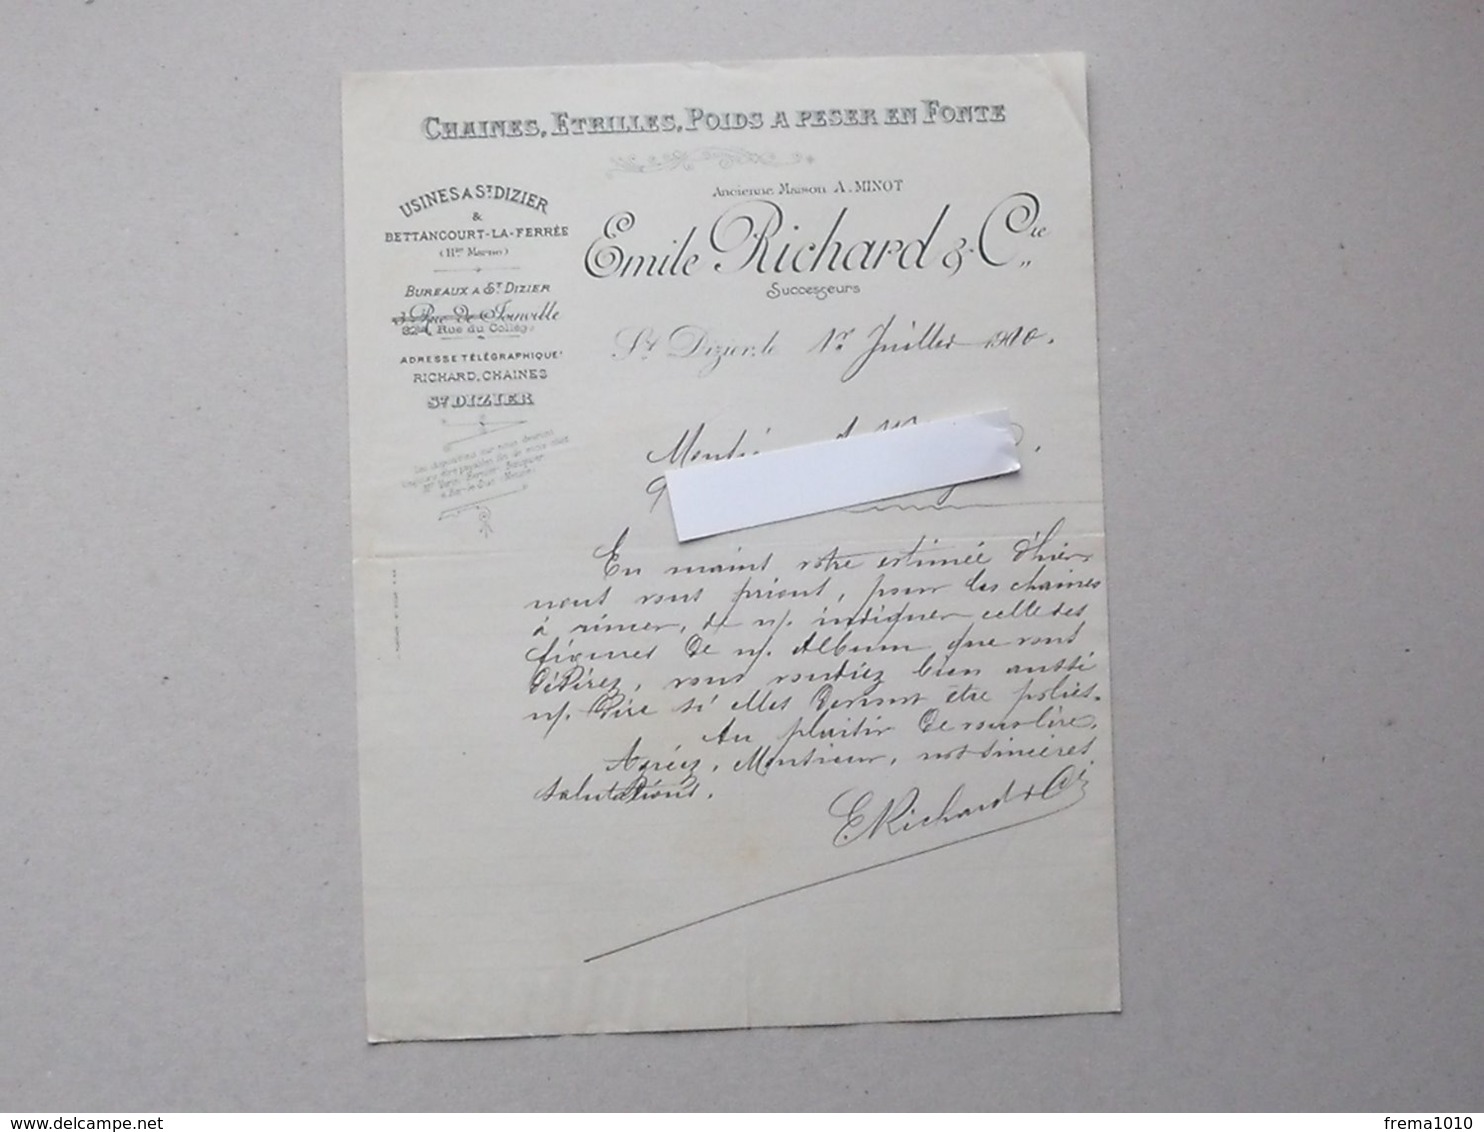 CHAINES, ETRILLES, POIDS A PESER EN FONTE
Ancienne Maison A. MINOT
Emile Richard & Cie
Successeurs
USINES A ST DIZIER
&
BETTANCOURT-LA-FERRÉE
(Hte Marne)
BUREAUX A ST DIZIER
Rue de Joinville
Rue du Collège
ADRESSE TÉLÉGRAPHIQUE:
RICHARD, CHAINES
ST DIZIER
St Dizier, le 1er Juillet 1910.
En mains votre estimée d'hier
nous vous prions, pour les chaines
à, de n/. indiquer celle des
figures de n/. Album que vous
désirez, vous voudrez bien aussi
n/. dire si elles devront être polies.
Au plaisir de vous lire,
Agréez, Monsieur, nos sincères
salutations.
E. Richard & Cie
delcampe.net
frema1010